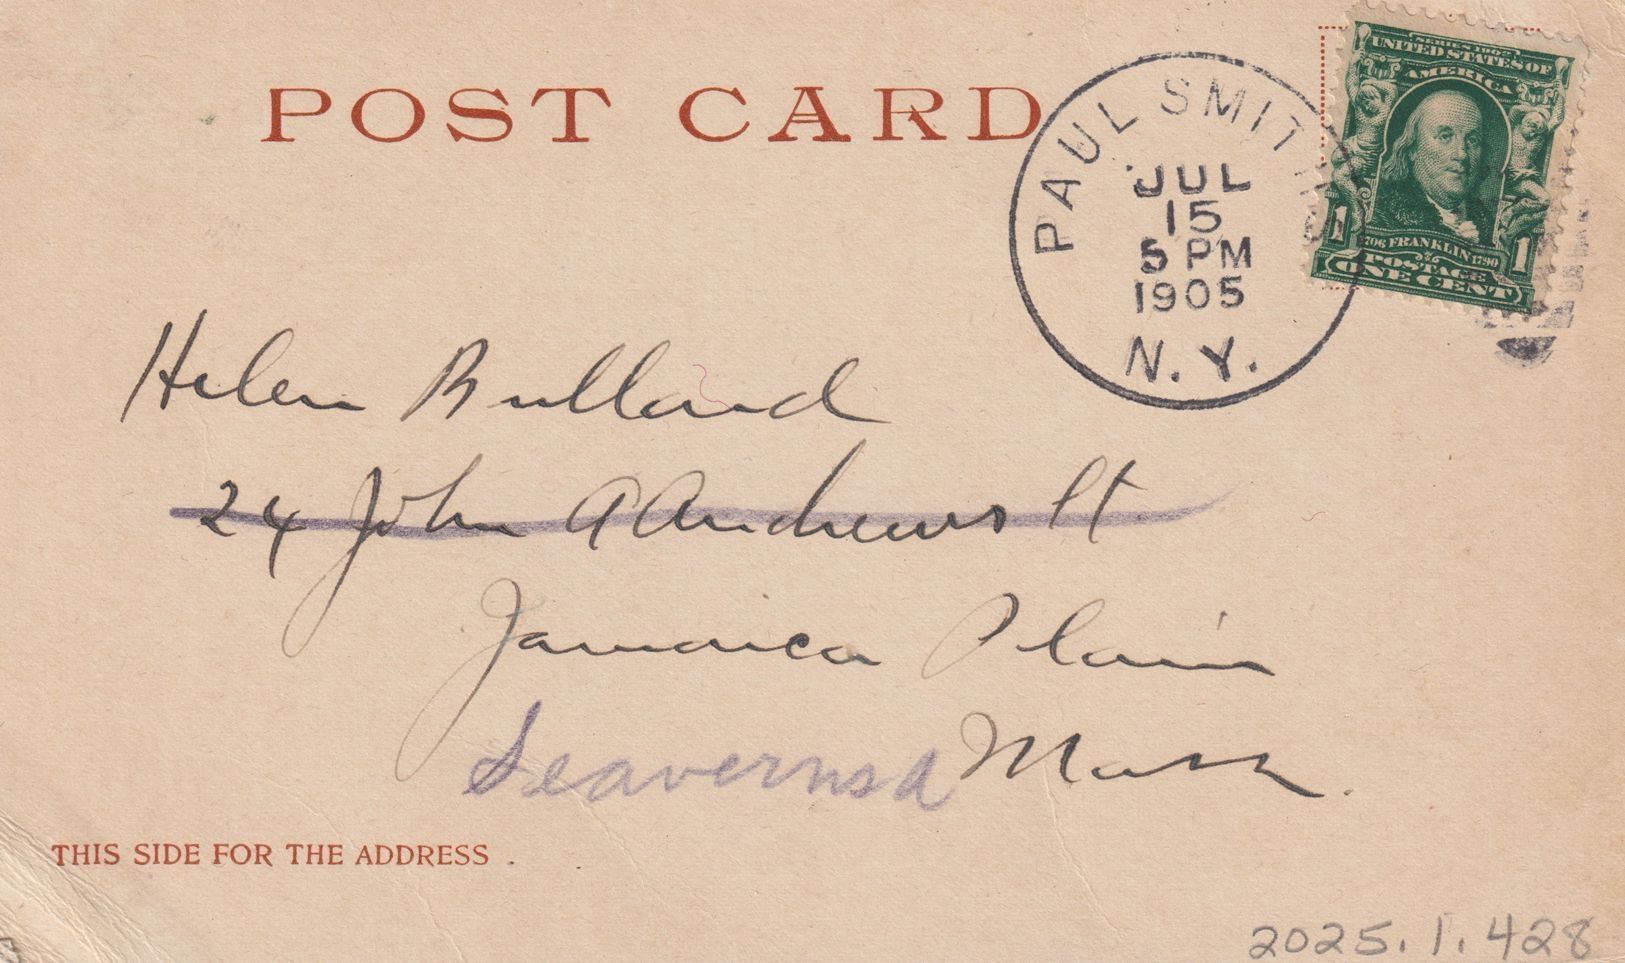 POST CARD
PAUL SMITHS
JUL
15
5 PM
1905
N.Y.
SERIES 1902
UNITED STATES OF
AMERICA
1706 FRANKLIN 1790
1 1
POSTAGE
ONE CENT
Helen Bullard
24 John A Andrews St.
Jamaica Plain
Seaverns A
Mass.
THIS SIDE FOR THE ADDRESS
2025.1.428